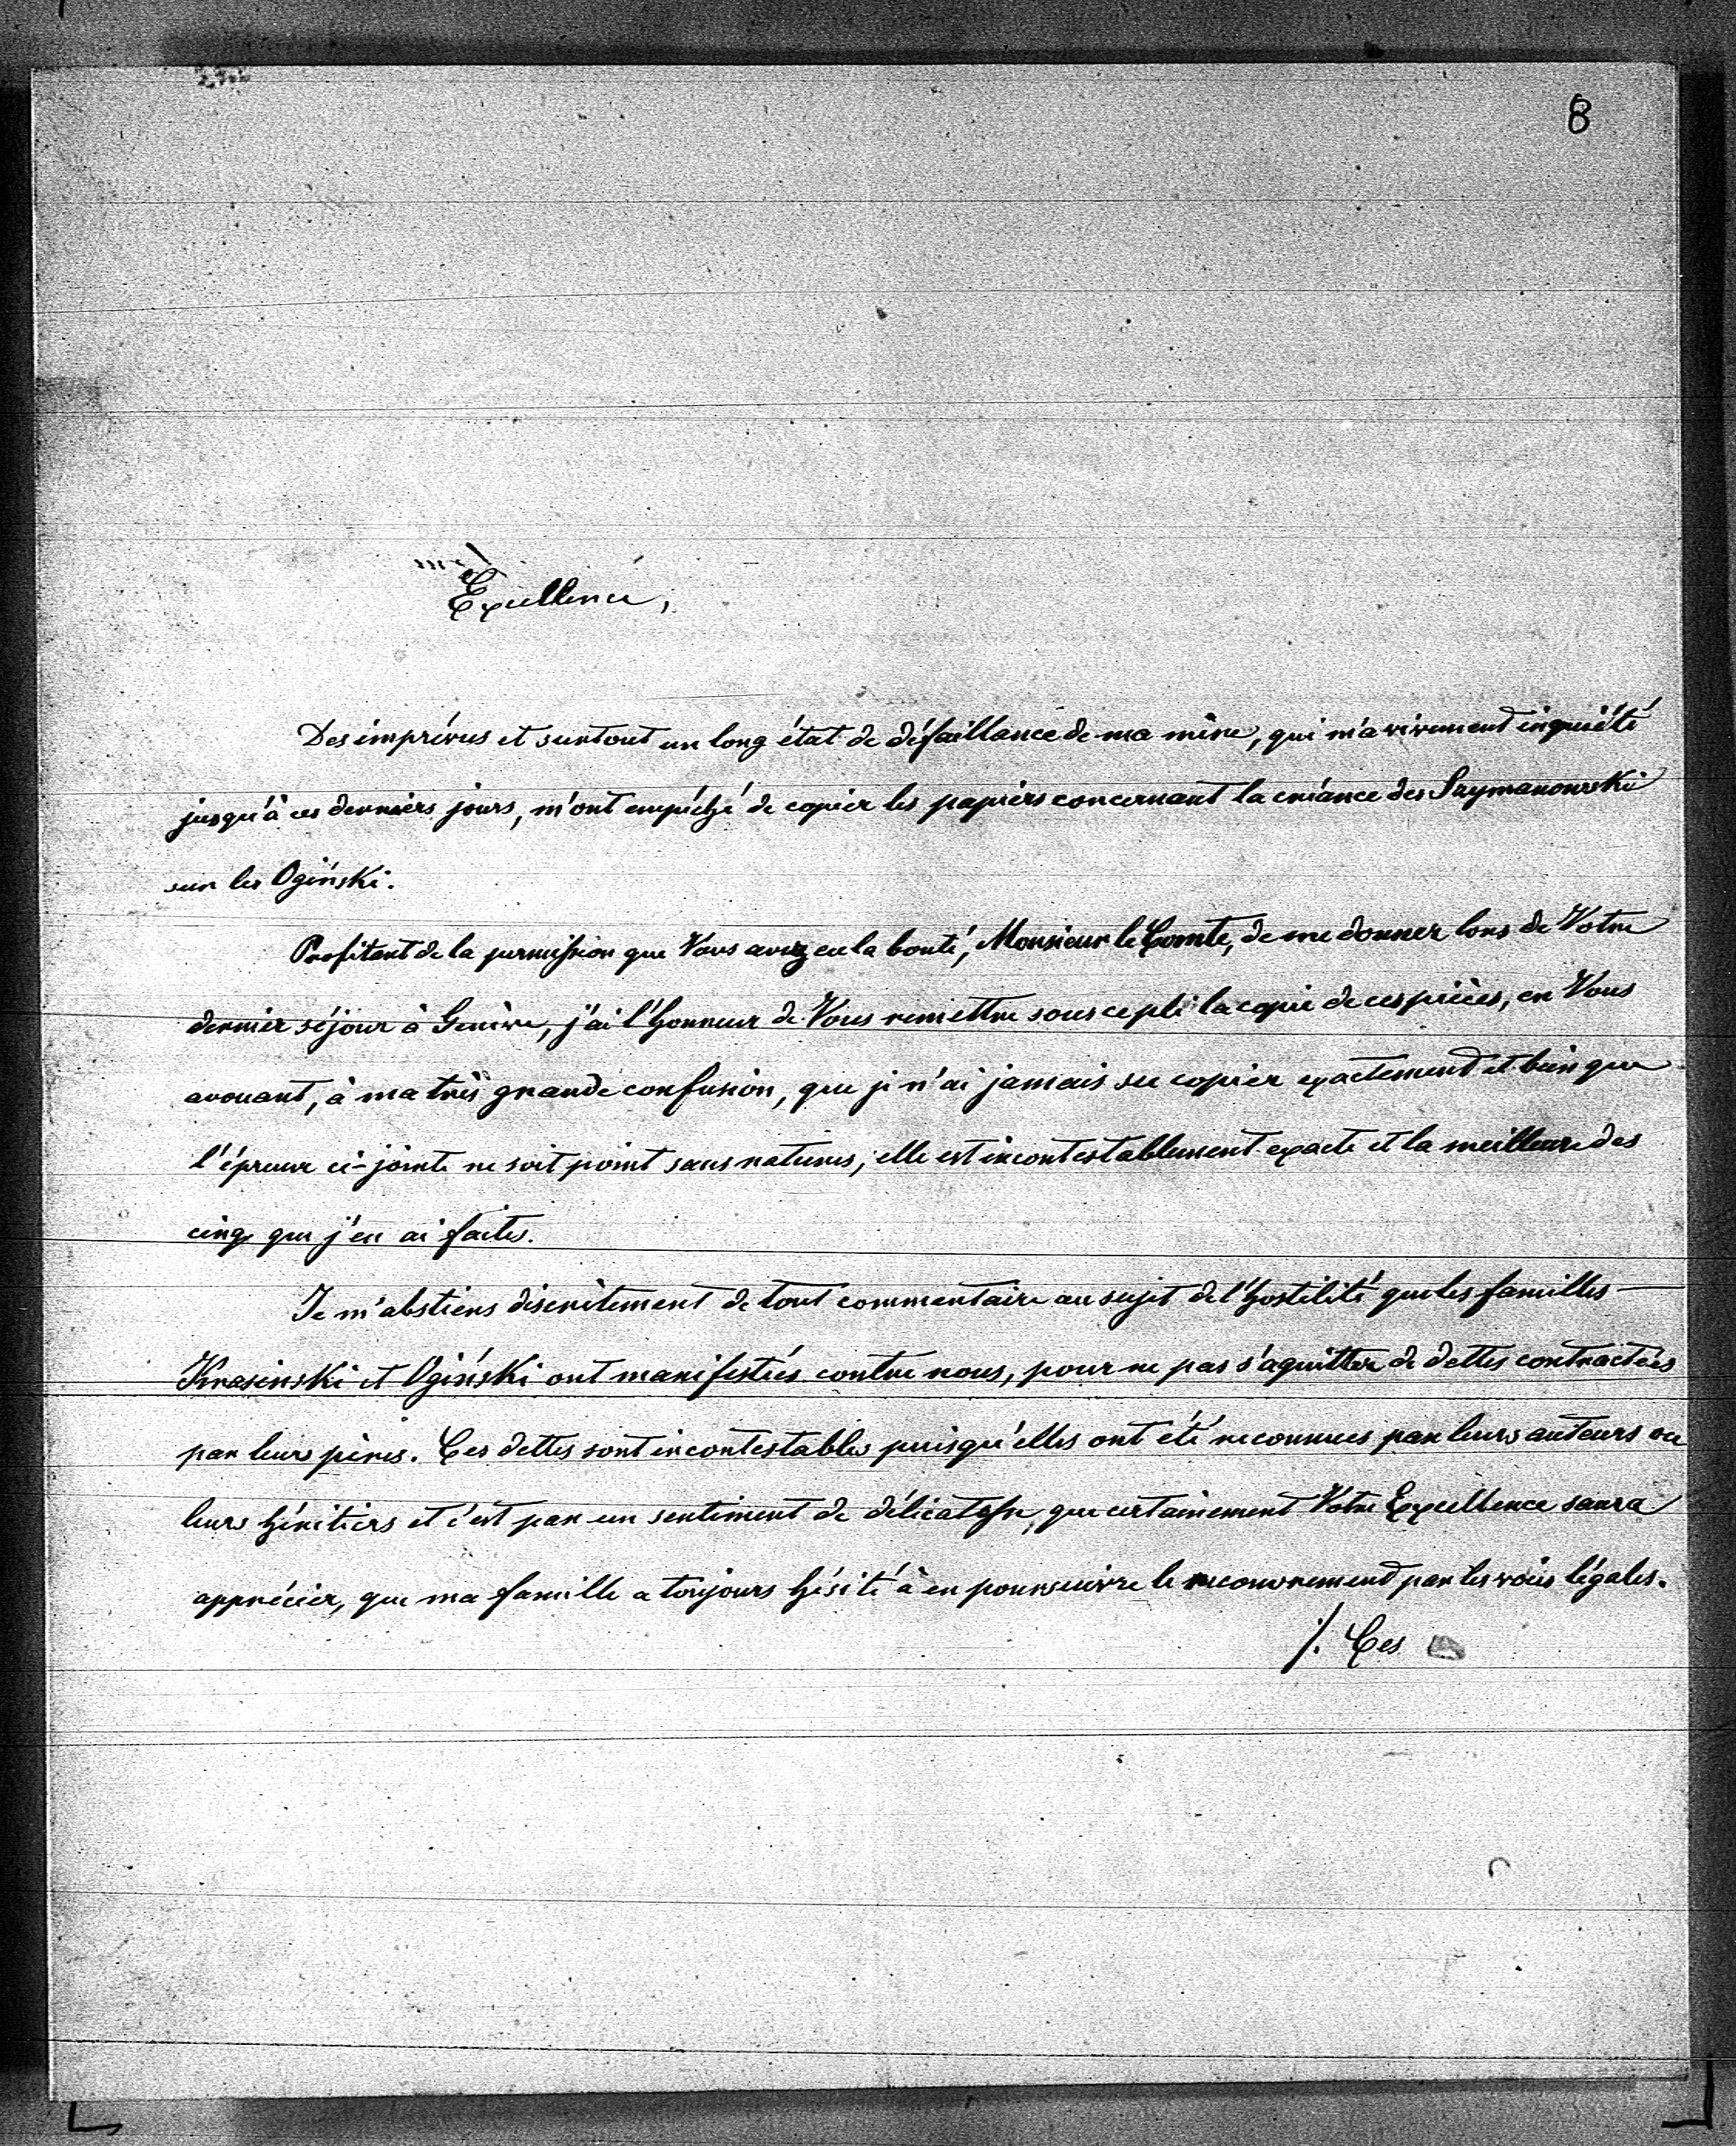 8
Excellence,
Des imprévus et surtout un long état de défaillance de ma mère, qui m'a vivement inquiété
jusqu'à ces derniers jours, m'ont empêché de copier les papiers concernant la créance des Szymanowski
sur les Ogiński.
Profitant de la permission que Vous avez eu la bonté, Monsieur le Comte, de me donner lors de Votre
dernier séjour à Genève, j'ai l'honneur de Vous remettre sous ce pli la copie de ces pièces, en Vous
avouant, à ma très grande confusion, que je n'ai jamais su copier exactement et bien que
l'épreuve ci-jointe ne soit point sans ratures, elle est incontestablement exacte et la meilleure des
cinq que j'en ai faites.
Je m'abstiens discrètement de tout commentaire au sujet de l'hostilité que les familles —
Krasinski et Ogiński ont manifestées contre nous, pour ne pas s'aquitter de dettes contractées
par leurs pères. Ces dettes sont incontestables puisqu'elles ont été reconnues par leurs auteurs ou
leurs héritiers et c'est par un sentiment de délicatesse, que certainement Votre Excellence saura
apprécier, que ma famille a toujours hésité à en poursuivre le recouvrement par les voies légales.
/. Ces